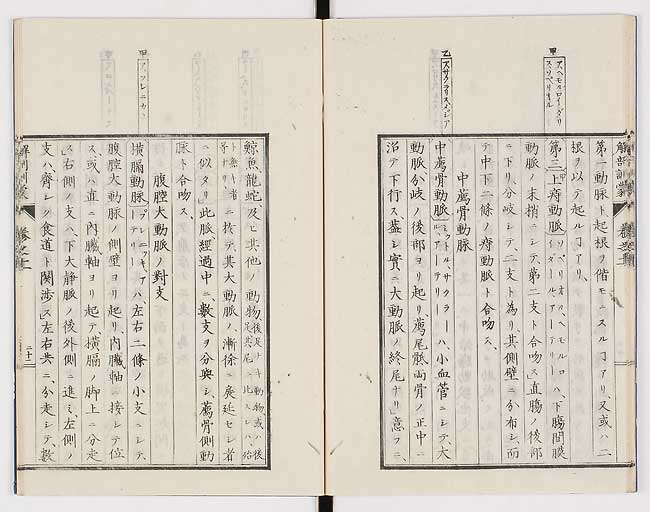 甲
第一動脉ト起根ヲ偕モニスルヿアリ又或ハ二
根ヲ以テ起ルヿアリ、
第三上痔動脉
動脉ノ末梢ニシテ、第二支ト合吻ス」直腸ノ後部
ニ下リ分岐シテ、二支ト為リ、其側壁ニ分布シ、而
テ中下二條ノ痔動脉ト合吻ス、
中薦骨動脉
乙
中薦骨動脉
ハ、小血管ニシテ、大
動脉分岐ノ後部ヨリ起リ、薦尾骶両骨ノ正中ニ
沿テ下行ス蓋シ實ニ大動脉ノ終尾ナリ」意フニ、
解剖訓蒙
鯨魚龍蛇及ヒ其他ノ動物
ニ於テ、其大動脉ノ漸徐ニ
延セシ者
ニ似タリ此脉經過中ニ、數支ヲ分與シ、薦骨側動
脉ト合吻ス、
腹腔大動脉ノ對支
甲
横膈動脉
ハ、左右二條ノ小支ニシテ、
腹腔大動脉ノ側壁ヨリ起リ、内臟軸ニ接シテ位
ス或ハ直ニ内臟軸ヨリ起テ、横膈ノ脚上ニ分走
ス」右側ノ支ハ、下大静脉ノ後外側ニ進ミ、左側ノ
支ハ齊シク食道ト関渉ス左右共ニ、分走シテ、數
解剖訓蒙
二十二